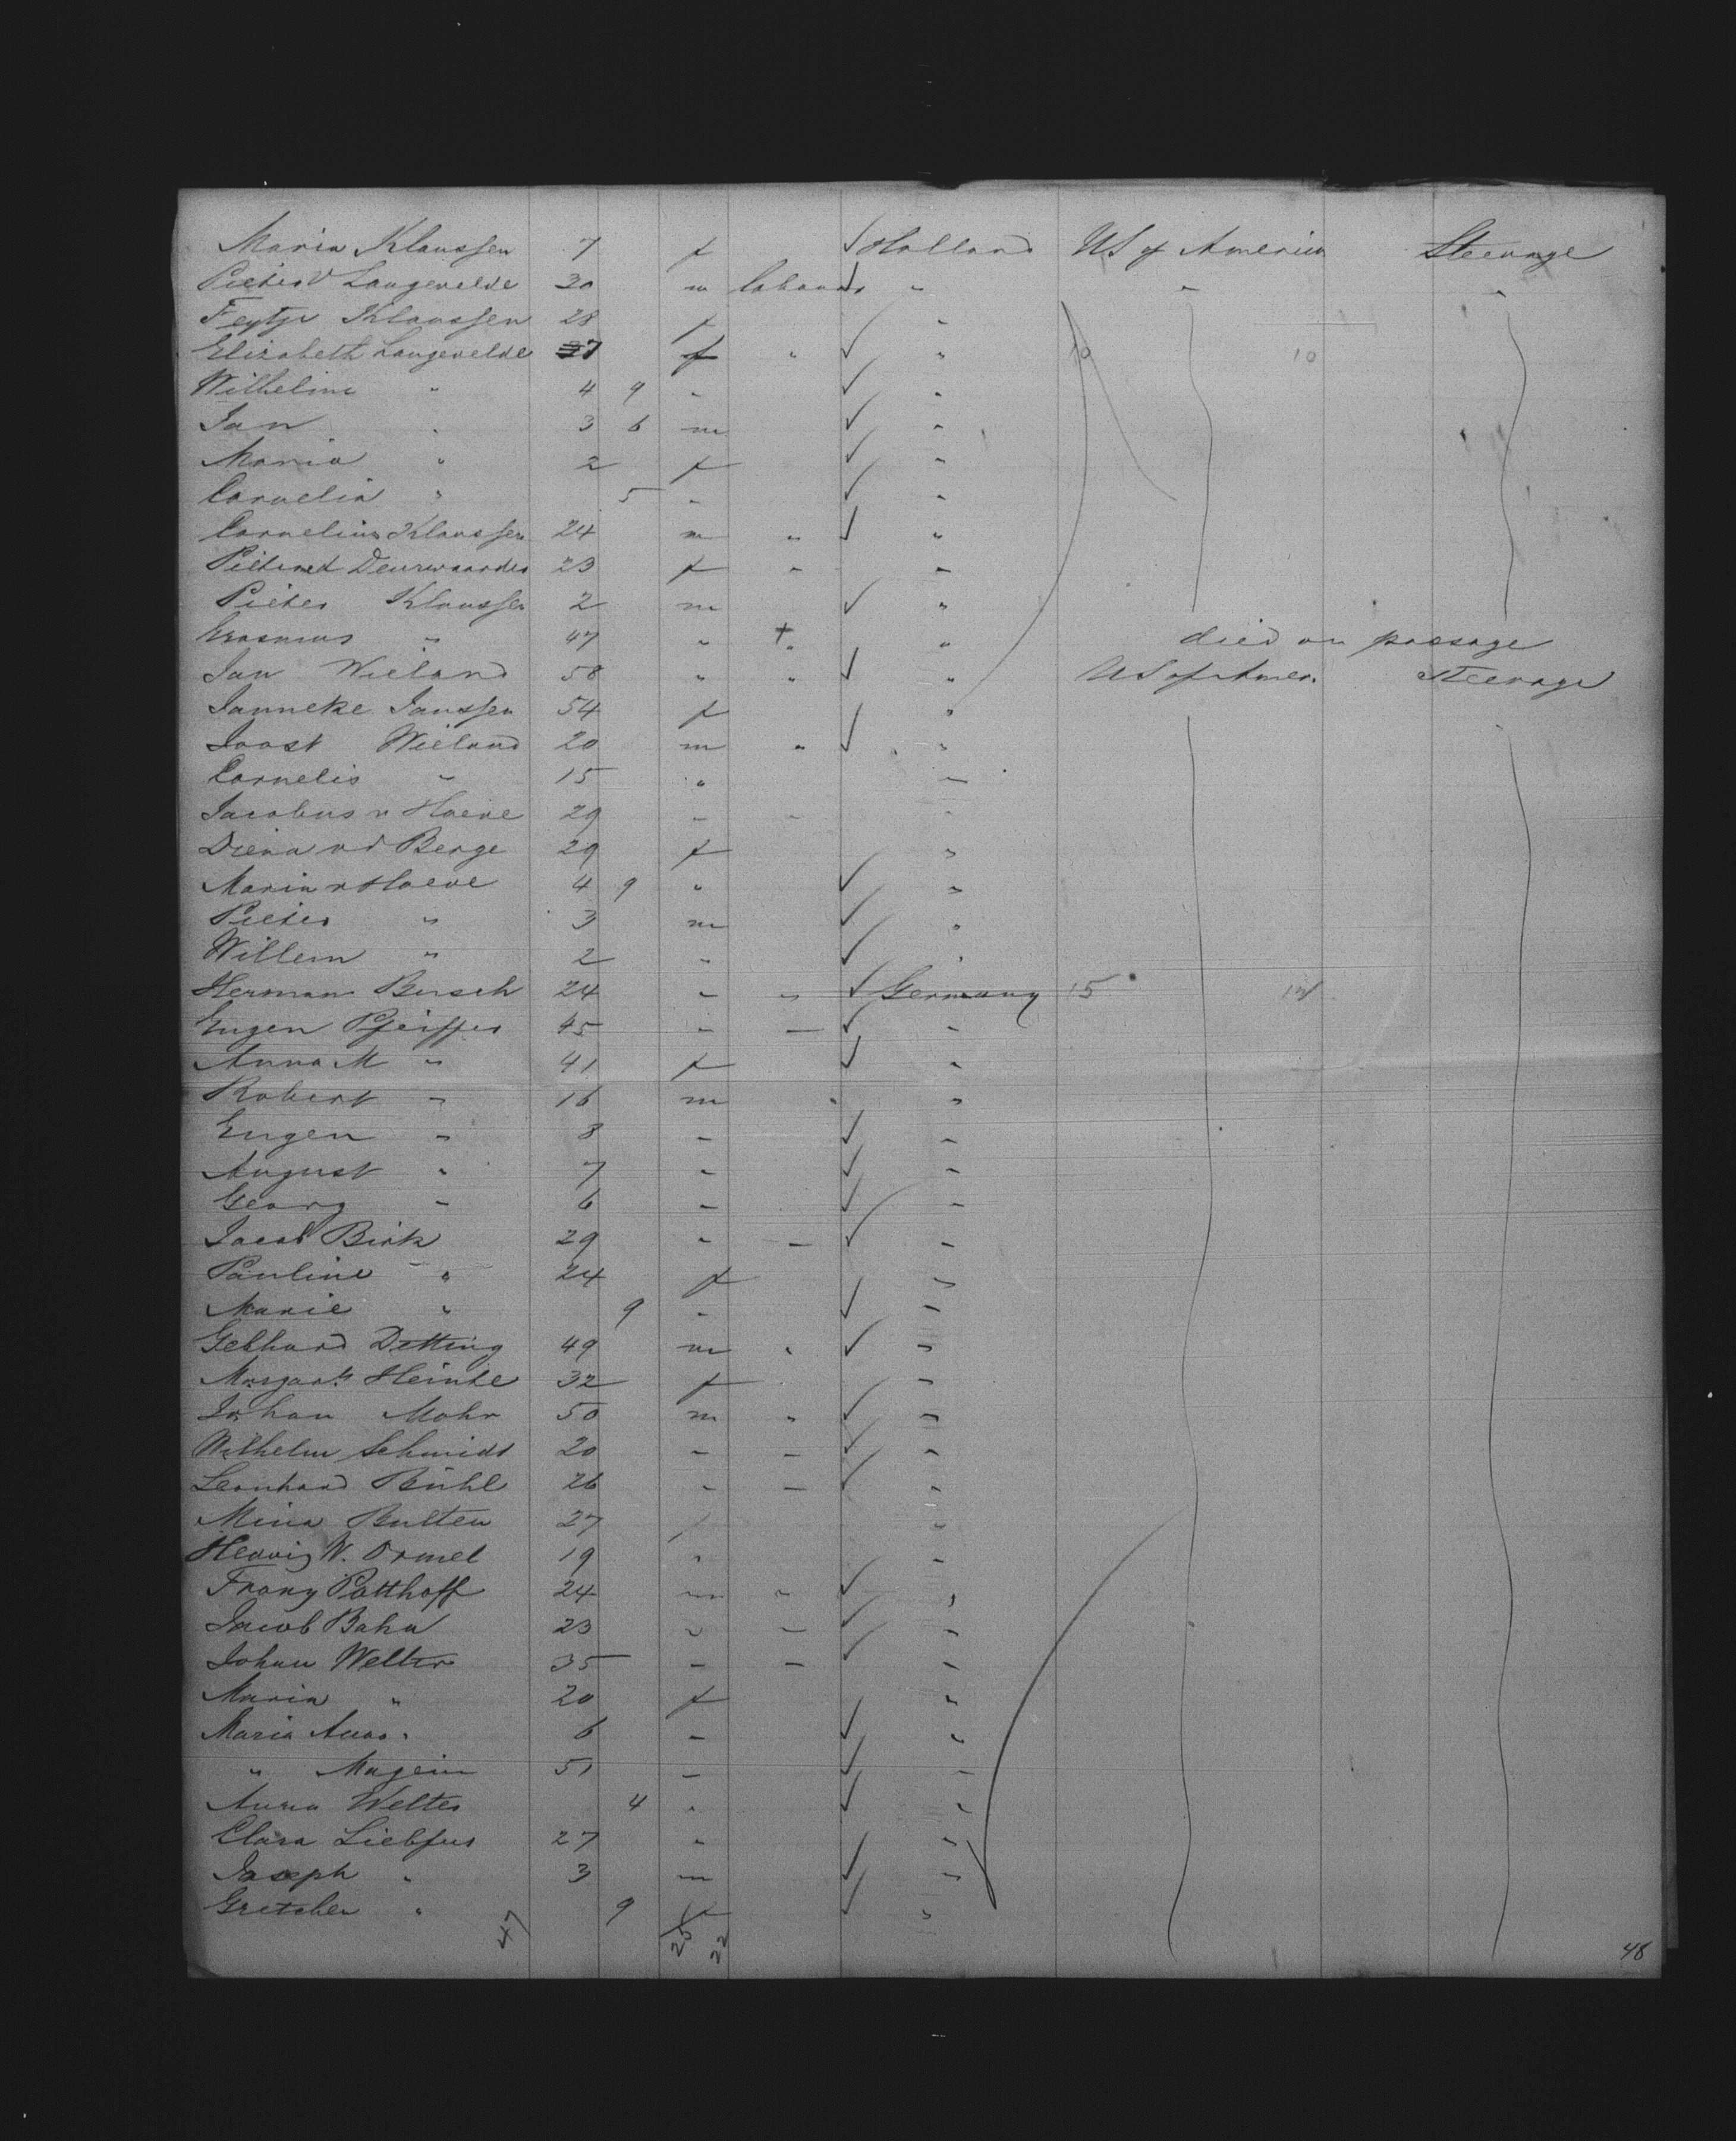 Maria Klaussen 7 f √ Holland US of America Steerage
Pieter V Langevelde 30 m laborer √ " " "
Feytje Klaussen 28 f √ "
Elizabeth Langevelde 27 f " √ " 10 10
Wilhelmi " 4 9 " √ "
Jan " 3 6 m √ "
Maria " 2 f √ "
Cornelia " 5 " √ "
Cornelius Klaussen 24 m " √ "
Pieternel Deurwaarder 23 f " "
Pieter Klaussen 2 m √ "
Erasmus " 47 " + " " died on passage
Jan Wieland 58 " " √ " US of Amer. Steerage
Janneke Janssen 54 f √ "
Joost Wieland 20 m " √ "
Cornelis " 15 " "
Jacobus v Hoeve 29 " " "
Diena vd Berge 29 f "
Maria v Hoeve 4 9 " √ "
Pieter " 3 m √ "
Willem " 2 " √ "
Herman Busch 24 " " √ Germany 15
Eugen Pfeiffer 45 " " √ "
Anna M " 41 f √ "
Robert " 16 m " "
Eugen " 8 " √ "
August " 7 " √ "
Georg " 6 " √ "
Jacob Birk 29 " " √ "
Pauline " 24 f "
Marie " 9 " √ "
Gebhard Detting 49 m " √ "
Margart. Heinte 32 f "
Johan Mohr 50 m " √ "
Wilhelm Schmidt 20 " " √ "
Leonhard Bühl 26 " " √ "
Mina Bulten 27 "
Hedwig W. Ormel 19 " "
Franz Potthoff 24 m " √ "
Jacob Bahn 23 " " √ "
Johan Welter 35 " " √ "
Maria " 20 f "
Maria Anna " 6 " √ "
" 51 " √ "
Anna Welter 4 " √ "
Clara Liebfus 27 " √ "
Joseph " 3 m √ "
Gretchen " 9 f √ "
47 25 22
48